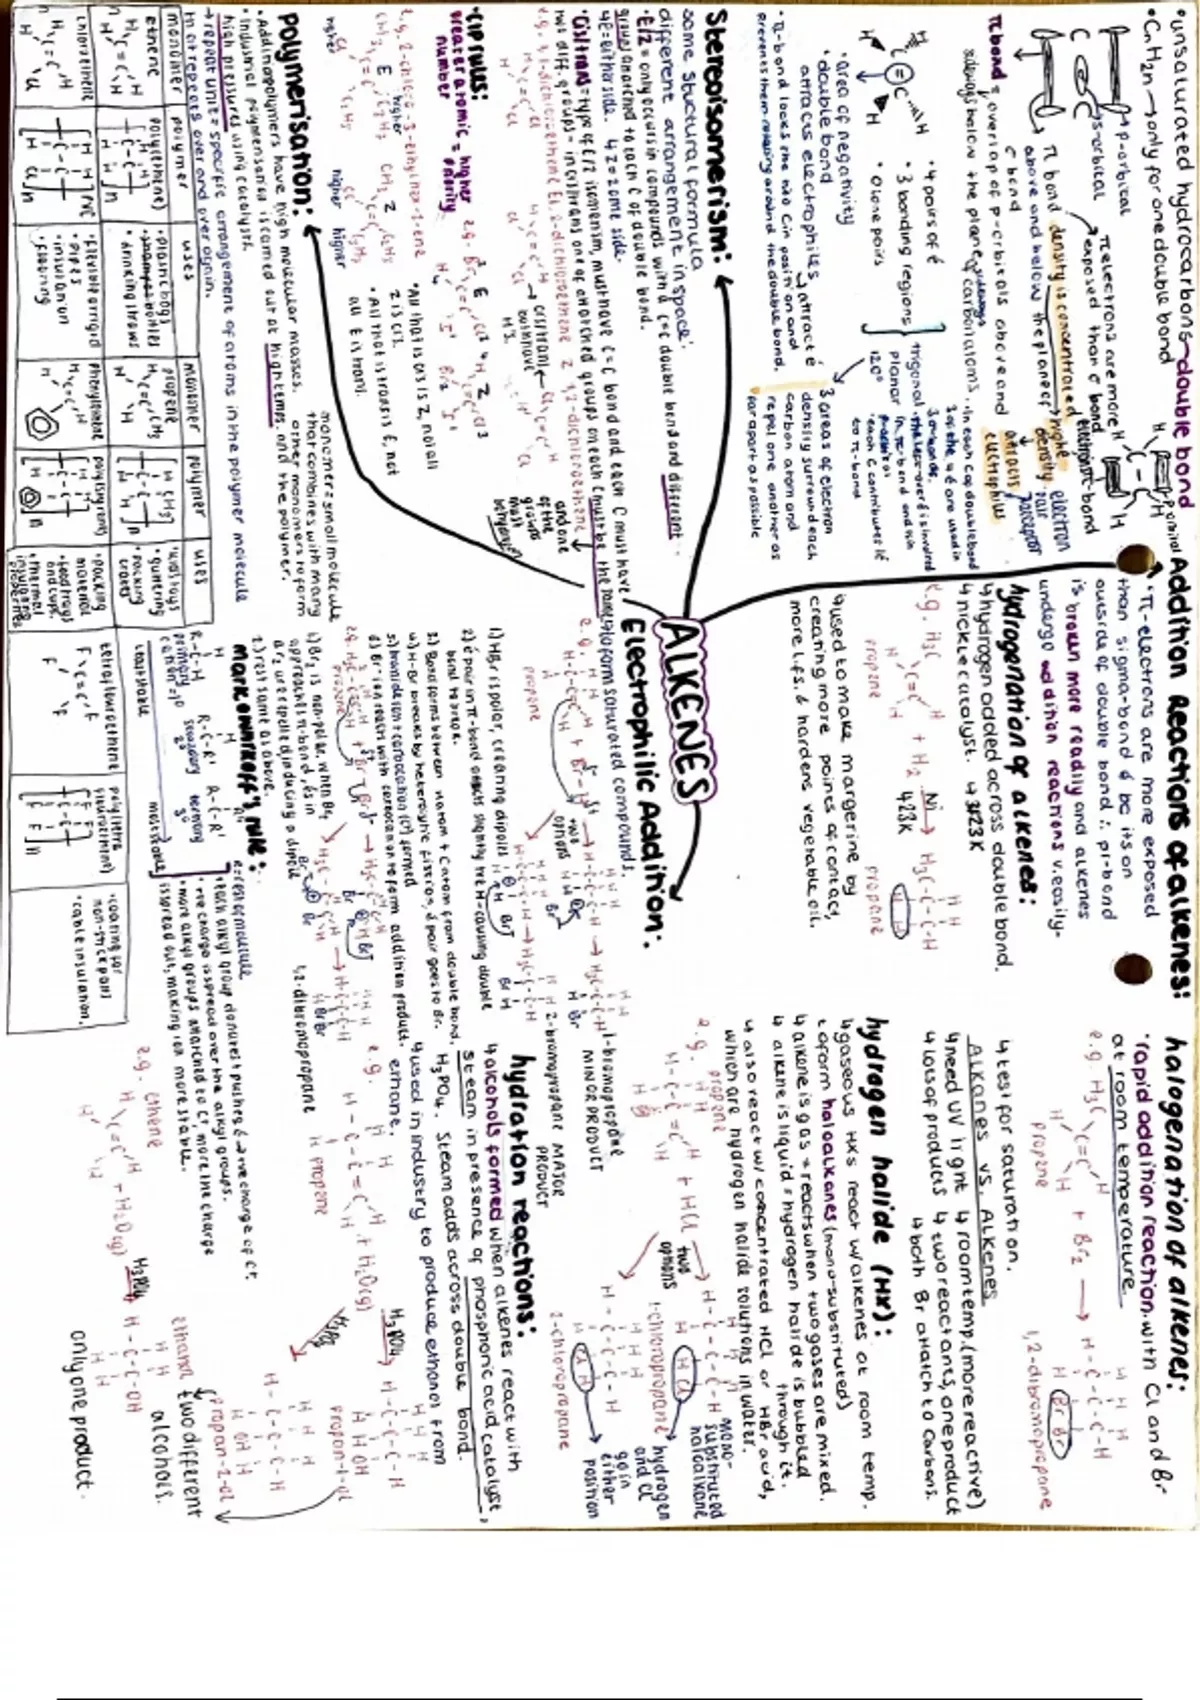 ALKENES
•unsaturated hydrocarbons-double bond
•CnH2n → only for one double bond
p-orbital
s-orbital
π electrons are more
exposed than σ bond
π bond density is concentrated
above and below the plane of
σ bond
π bond = overlap of p-orbitals above and
electron
pair
acceptor
•4 pairs of é
•3 bonding regions
•0 lone pairs
trigonal
planar
120°
•area of negativity
•double bond
attracts electrophiles
↳attract é
•π-bond locks the two C in position and
prevents them rotating around the double bond.
3 areas of electron
density surround each
carbon atom and
repel one another as
far apart as possible
Stereoisomerism:
same structural formula
different arrangement in space.
•E/Z = only occurs in compounds with a C=C double bond and different
groups attached to each C of double bond.
↳E = either side. ↳Z = same side.
•cis/trans = type of E/Z isomerism, must have C=C bond and each C must have
two diff groups - in cis/trans one of attached groups on each C must be the same
e.g. 1,1-dichloroethene E 1,2-dichloroethene Z 1,2-dichloroethene
and one
of the
groups
must
be hydrogen
•CIP rules:
greater atomic = higher
number priority
e.g. 2-chloro-3-ethylhex-2-ene
higher
higher
higher
higher
•All that is cis is Z, not all
Z is cis.
•All that is trans is E, not
all E is trans.
Polymerisation:
•Addition polymers have high molecular masses.
•Industrial polymerisation is carried out at high temps and
high pressures using catalysts.
→repeat unit = specific arrangement of atoms in the polymer molecule
that repeats over and over again.
monomer = small molecule
that combines with many
other monomers to form
the polymer.
monomer
polymer
uses
monomer
polymer
uses
ethene
poly(ethene)
•plastic bags
•shampoo bottles
•drinking straws
propene
•guttering
•packing
crates
chloroethene
PVC
•flexible or rigid
•pipes
•insulation
•flooring
phenylethene
poly(styrene)
•packing
material
•food trays
and cups.
•thermal
tetrafluoroethene
poly(tetra
fluoroethene)
•coating for
non-stick pans
•cable insulation.
Addition Reactions of alkenes:
•π-electrons are more exposed
than sigma-bond & be its on
outside of double bond ∴ pi-bond
is broken more readily and alkenes
undergo addition reactions v. easily-
hydrogenation of alkenes:
↳hydrogen added across double bond.
↳nickle catalyst. ↳423K
e.g. H3C C=C H + H2 Ni→ 423K H3C-C-C-H
propene
propane
↳used to make margerine by
creating more points of contact,
more LFs. & hardens vegetable oil.
halogenation of alkenes:
•rapid addition reaction with Cl and Br
at room temperature.
e.g. H3C C=C H + Br2 →
propene
1,2-dibromopropane
↳test for saturation.
ALKANES vs. ALKENES
↳need UV light ↳room temp. (more reactive)
↳lots of products ↳two reactants, one product
↳both Br attach to Carbons.
hydrogen halide (HX):
↳gaseous HX's react w/alkenes at room temp.
to form haloalkanes (mono-substituted)
↳alkene is gas = reacts when two gases are mixed.
↳alkene is liquid = hydrogen halide is bubbled
through it.
↳also react w/ concentrated HCl or HBr acid,
which are hydrogen halide solutions in water.
e.g.
propene
+ HCl
two
options
1-chloropropane
2-chloropropane
mono-
substituted
haloalkane
hydrogen
and Cl
go in
either
position
Electrophilic Addition:
to form saturated compounds.
e.g.
propene
two
options
1-bromopropane
MINOR PRODUCT
2-bromopropane MAJOR
PRODUCT
1) HBr is polar, creating dipoles
2) é pair in π-bond attracts slightly +ve H - causing double
bond to break.
3) Bond forms between H atom + C atom from double bond.
4) H-Br breaks by heterolytic fission, é pair goes to Br.
5) bromide ion + carbocation (C⁺) formed
6) Br⁻ ion reacts with carbocation to form addition product.
e.g.
propene
1,2-dibromopropane
1) Br2 is non-polar. When Br2
approaches π-bond, é's in
Br2 are repelled inducing a dipole
2) rest same as above.
Markownikoff's rule:
R = rest of molecule
primary
secondary
2°
tertiary
3°
least stable
most stable
•each alkyl group donates & pushes é → +ve charge of C⁺.
•+ve charge is spread over the alkyl groups.
•more alkyl groups attached to C⁺, more the charge
is spread out, making ion more stable.
hydration reactions:
↳alcohols formed when alkenes react with
steam in presence of phosphoric acid catalyst,
H3PO4. Steam adds across double bond.
↳used in industry to produce ethanol from
ethane.
e.g.
propene
+ H2O(g)
H3PO4
H3PO4
propan-1-ol
propan-2-ol
two different
alcohols.
e.g. ethene
+ H2O(g) H3PO4
ethanol
only one product.